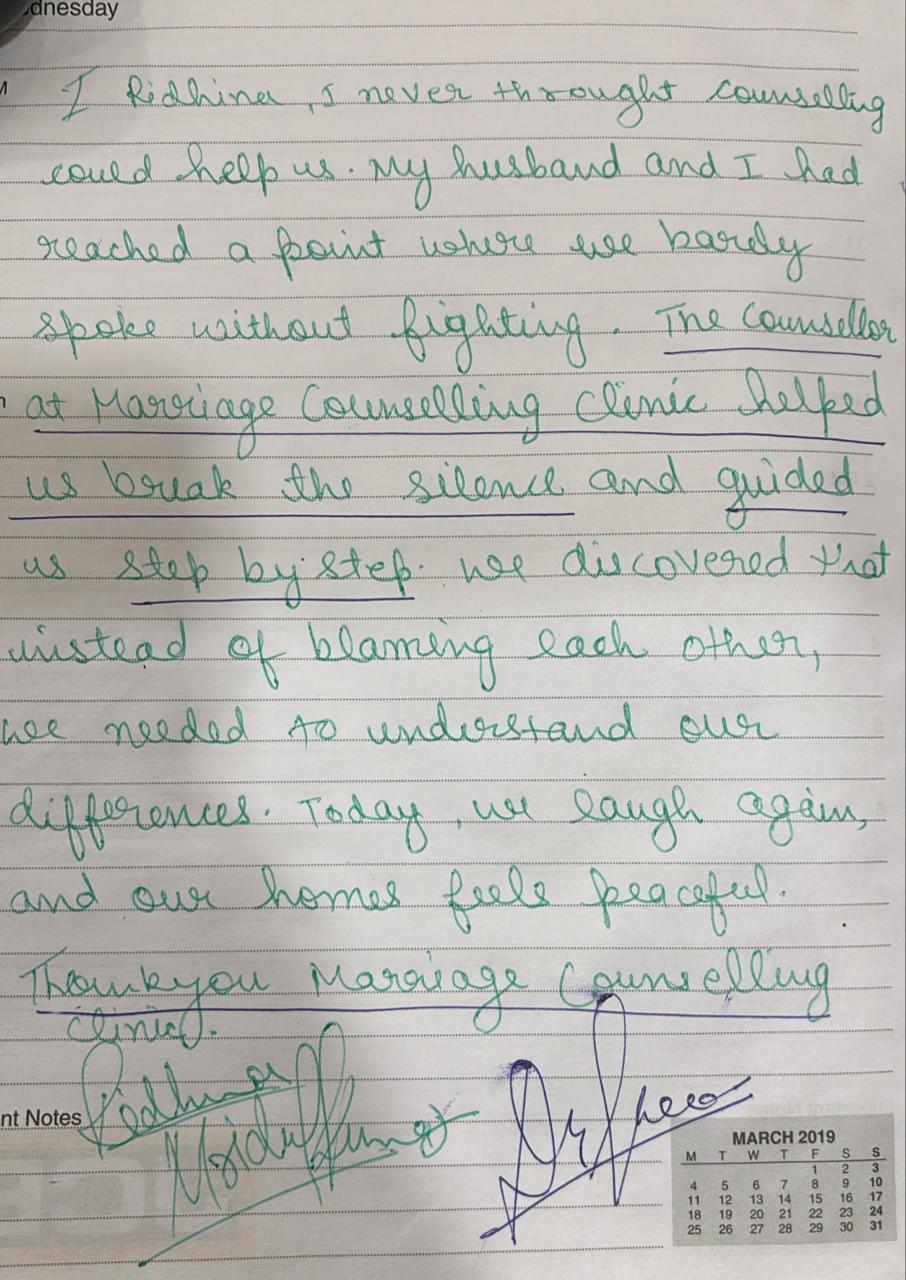 dnesday
I Ridhima, I never throught counselling
could help us. My husband and I had
reached a point where we barely
spoke without fighting. The Counsellor
at Marriage Counselling Clinic helped
us break the silence and guided
us step by step. we discovered that
instead of blaming each other,
we needed to understand our
differences. Today, we laugh again,
and our homes feels peaceful.
Thankyou Marriage Counselling
Clinic.
Ridhima
nt Notes
MARCH 2019
M T W T F S S
1 2 3
4 5 6 7 8 9 10
11 12 13 14 15 16 17
18 19 20 21 22 23 24
25 26 27 28 29 30 31